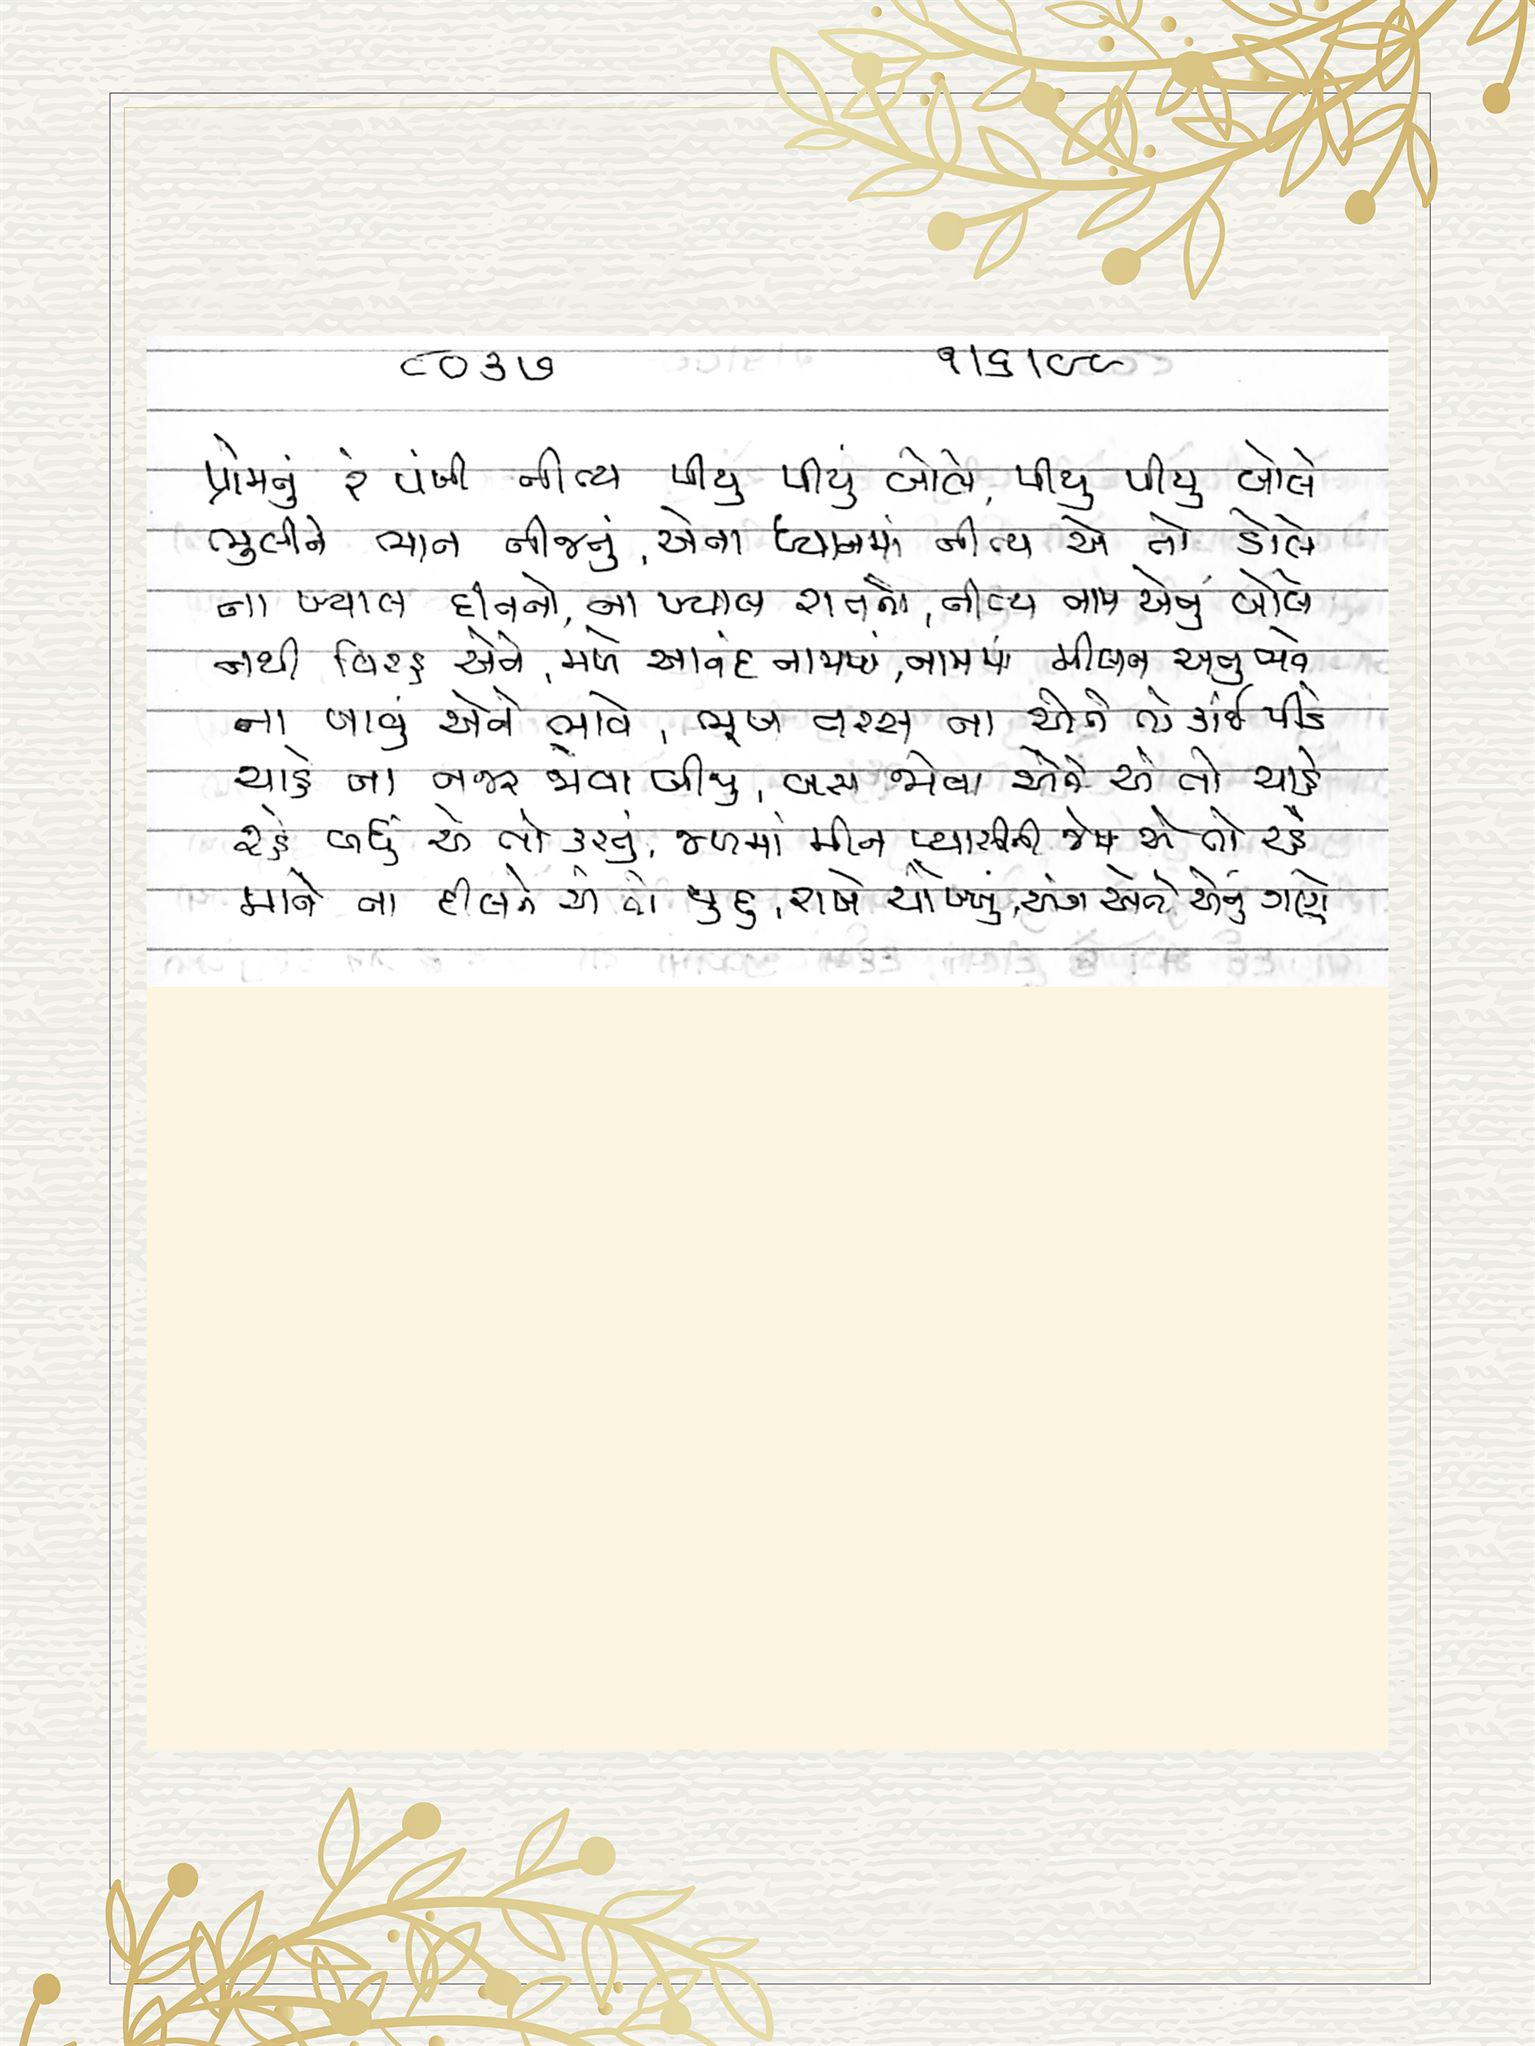 ૯૦૩૭ ૧/૬/૯૯
પ્રેમનું રે પંખી નીત્ય પીયુ પીયું બોલે, પીયુ પીયુ બોલે
ભુલીને ભાન નીજનું, એના ધ્યાનમાં નીત્ય એ તો ડોલે
ના ખ્યાલ દીનનો, ના ખ્યાલ રાતનો, નીત્ય નામ એનું બોલે
નથી વિરહ એને, મળે આનંદ નામમાં, નામમાં મીલન અનુભવે
ના ખાવું એને ભાવે, ભૂખ તરસ ના એને તો કાંઈ પીડે
ચાહે ના નજર જોવા બીજુ, બસ જોવા એને એ તો ચાહે
રહે બધું એ તો કરતું, જળમાં મીન પ્યાસીની જેમ એ તો રહે
માને ના દીલને એ તો જુદુ, રાખે ચોખ્ખું, અંગ એને એનું ગણે